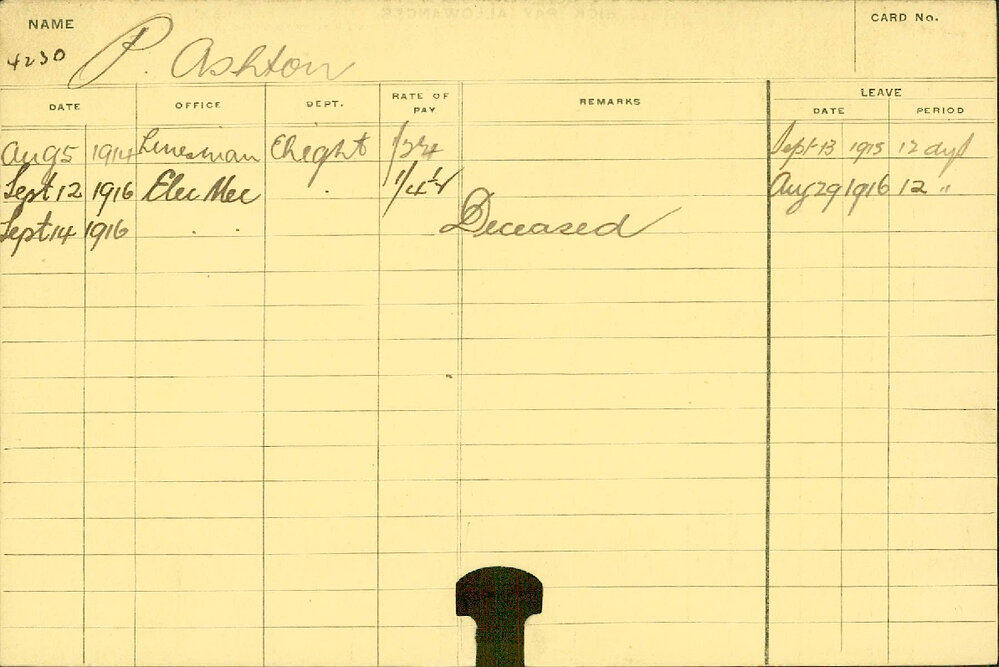 NAME
4230 P. Ashton
CARD No.
DATE OFFICE DEPT. RATE OF PAY REMARKS LEAVE DATE PERIOD
Aug 5 1914 Linesman Elight Sept 13 1915 12 dys
Sept 12 1916 Elec Mec 1/4½ Aug 29 1916 12 "
Sept 14 1916 Deceased